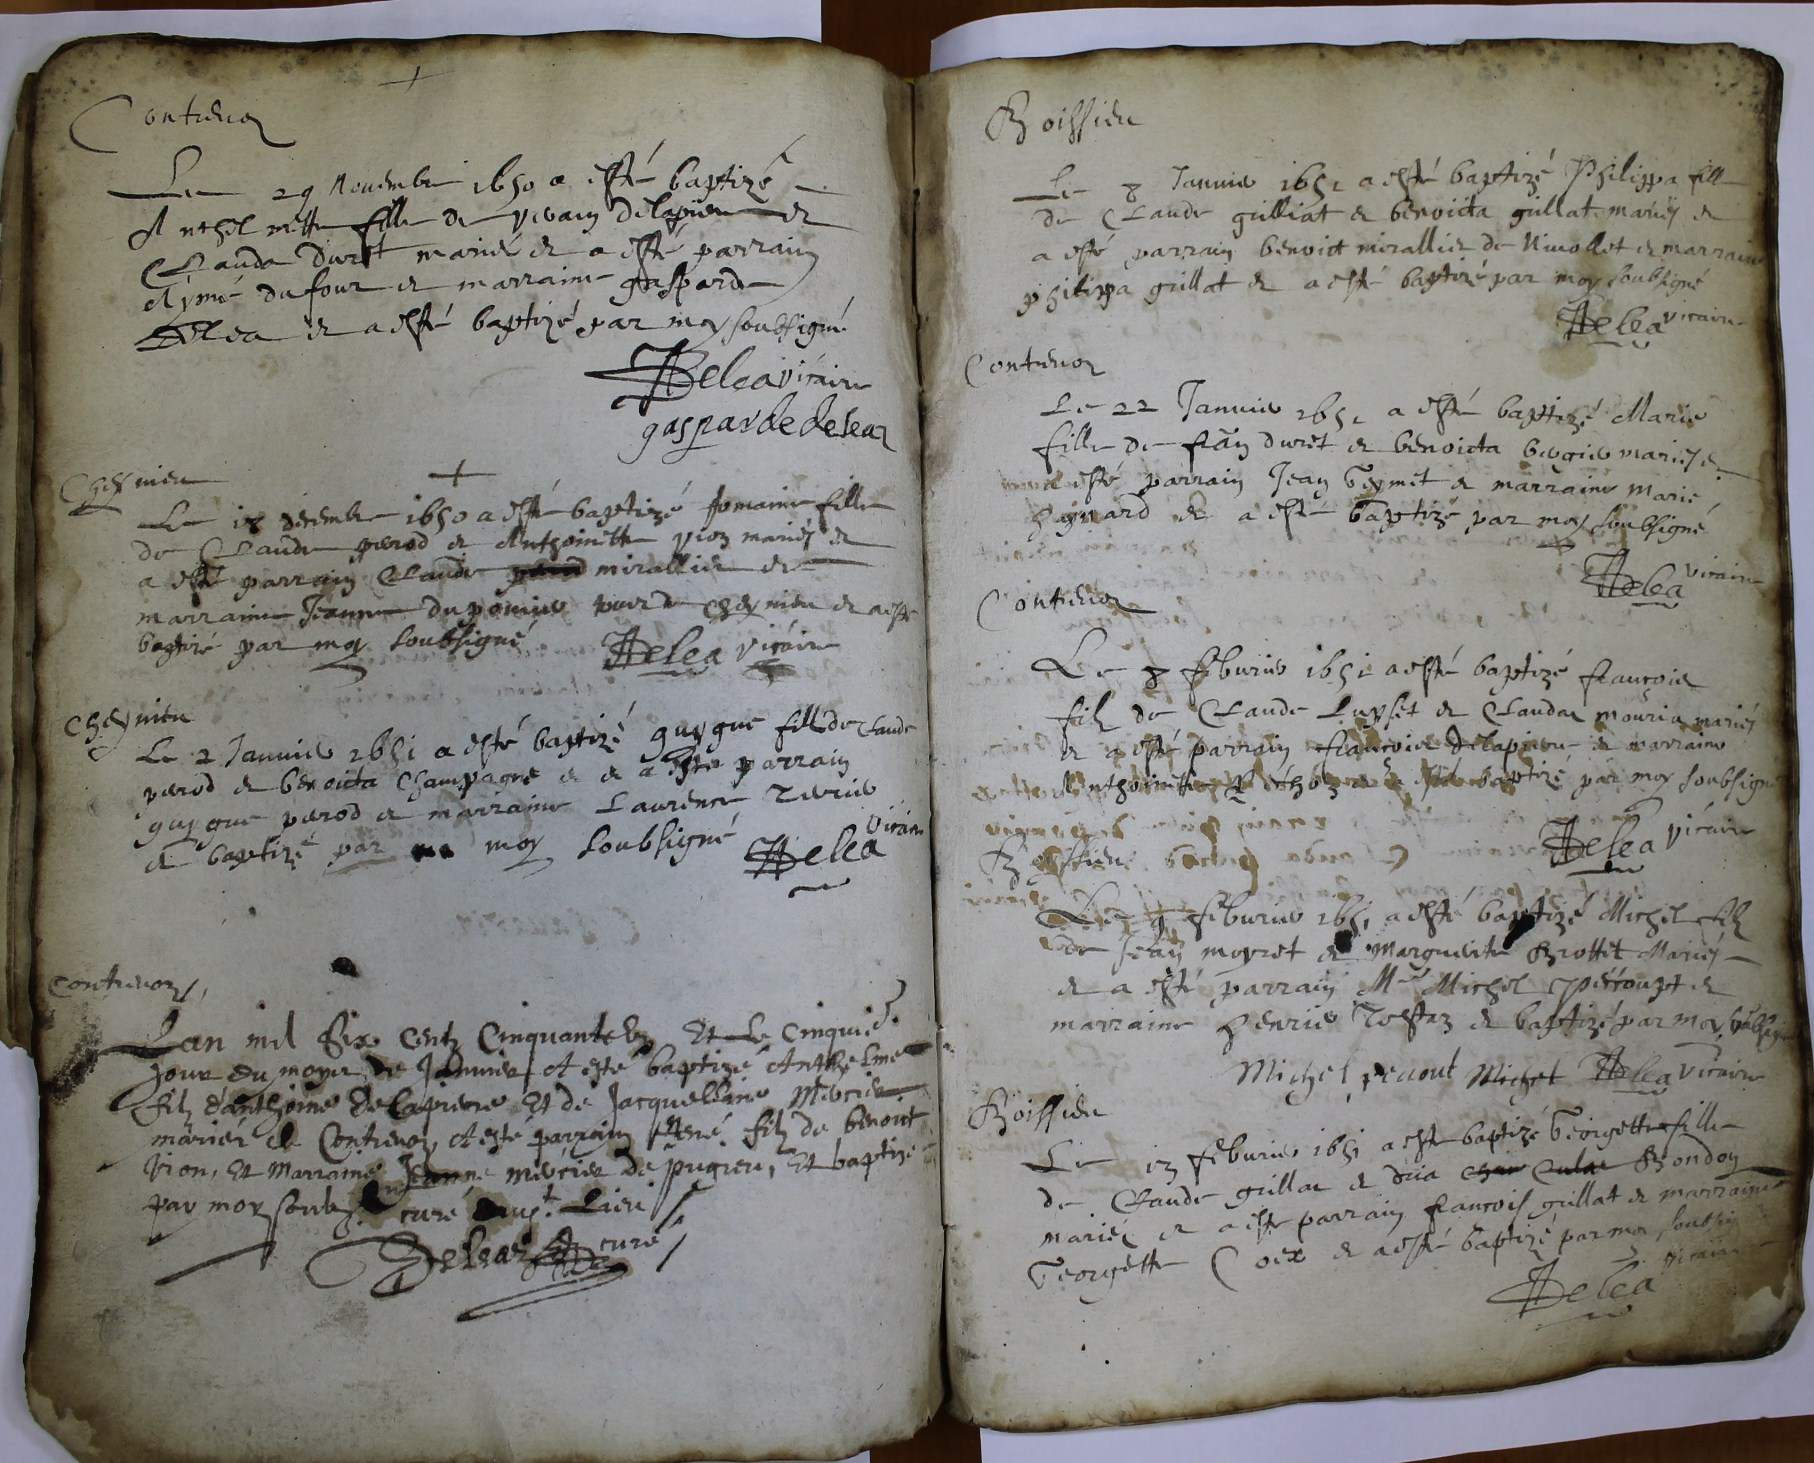 Contrevoz
Le 29 Novembre 1650 a esté baptizé
Anthelmette fille de yvain delapierre et
Clauda Duret mariés et a esté parrain
Aymé dufour et marraine gasparde
Delea et a esté baptizé par moy soubsigné
Delea vicaire
gasparde delea
Cheynieu
Le 18 decembre 1650 a esté baptizé romaine fille
de Claude perod et Anthoinette yion mariés et
a esté parrain Claude mirallier et
marraine Jeanne du pomier de Cheynieu et a esté
baptizé par moy soubsigné Delea vicaire
Cheynieu
Le 2 Janvier 1651 a esté baptizé guygue fille de Claude
perod et benoicta Champagne et a esté parrain
guygue perod et marraine Laurence
et baptizé par moy soubsigné Delea vicaire
Contrevoz
Lan mil Six Centz Cinquante Et Le Cinquie.
Jour du moys de Janvier A esté baptizé Anthelme
filz d'anthoine Delapierre Et de Jacquelline Mercier
mariés de Contrevoz, A esté parrain René filz de benoit
vion, Et Marraine Jeanne mercier de pugieu, Et baptizé
par moy soubz. curé Lieu
Delea curé
Boissieu
Le 8 Janvier 1651 a esté baptizé Philippa fille
de Claude gulliat et benoicta gullat mariés et
a esté parrain benoict mirallier de Nivollet et marraine
philippa grillat et a esté baptizé par moy soubsigné
Delea vicaire
Contrevoz
Le 22 Janvier 1651 a esté baptizé Marie
fille de duret et benoicta bergier mariés et
a esté parrain Jean Teymet et marraine Marie
et a esté baptizé par moy soubsigné
Delea vicaire
Contrevoz
Le 8 feburier 1651 a esté baptizé françois
filz de Claude Luyset et Clauda mariés
et a esté parrain françois Delapierre et marraine
Anthoinette et a esté baptizé par moy soubsigné
Delea vicaire
Boissieu
Le 9 feburier 1651 a esté baptizé Michel filz
de Jean moyret et Marguerite Brottet Mariés
et a esté parrain Mre Michel et
marraine henrie et baptizé par moy soubsigné
Michel Delea vicaire
Boissieu
Le 13 feburier 1651 a esté baptizé Georgette fille
de Claude grillat et Bondon
mariés et a esté parrain françois grillat et marraine
Georgette Coex et a esté baptizé par moy soubsig
Delea vicaire